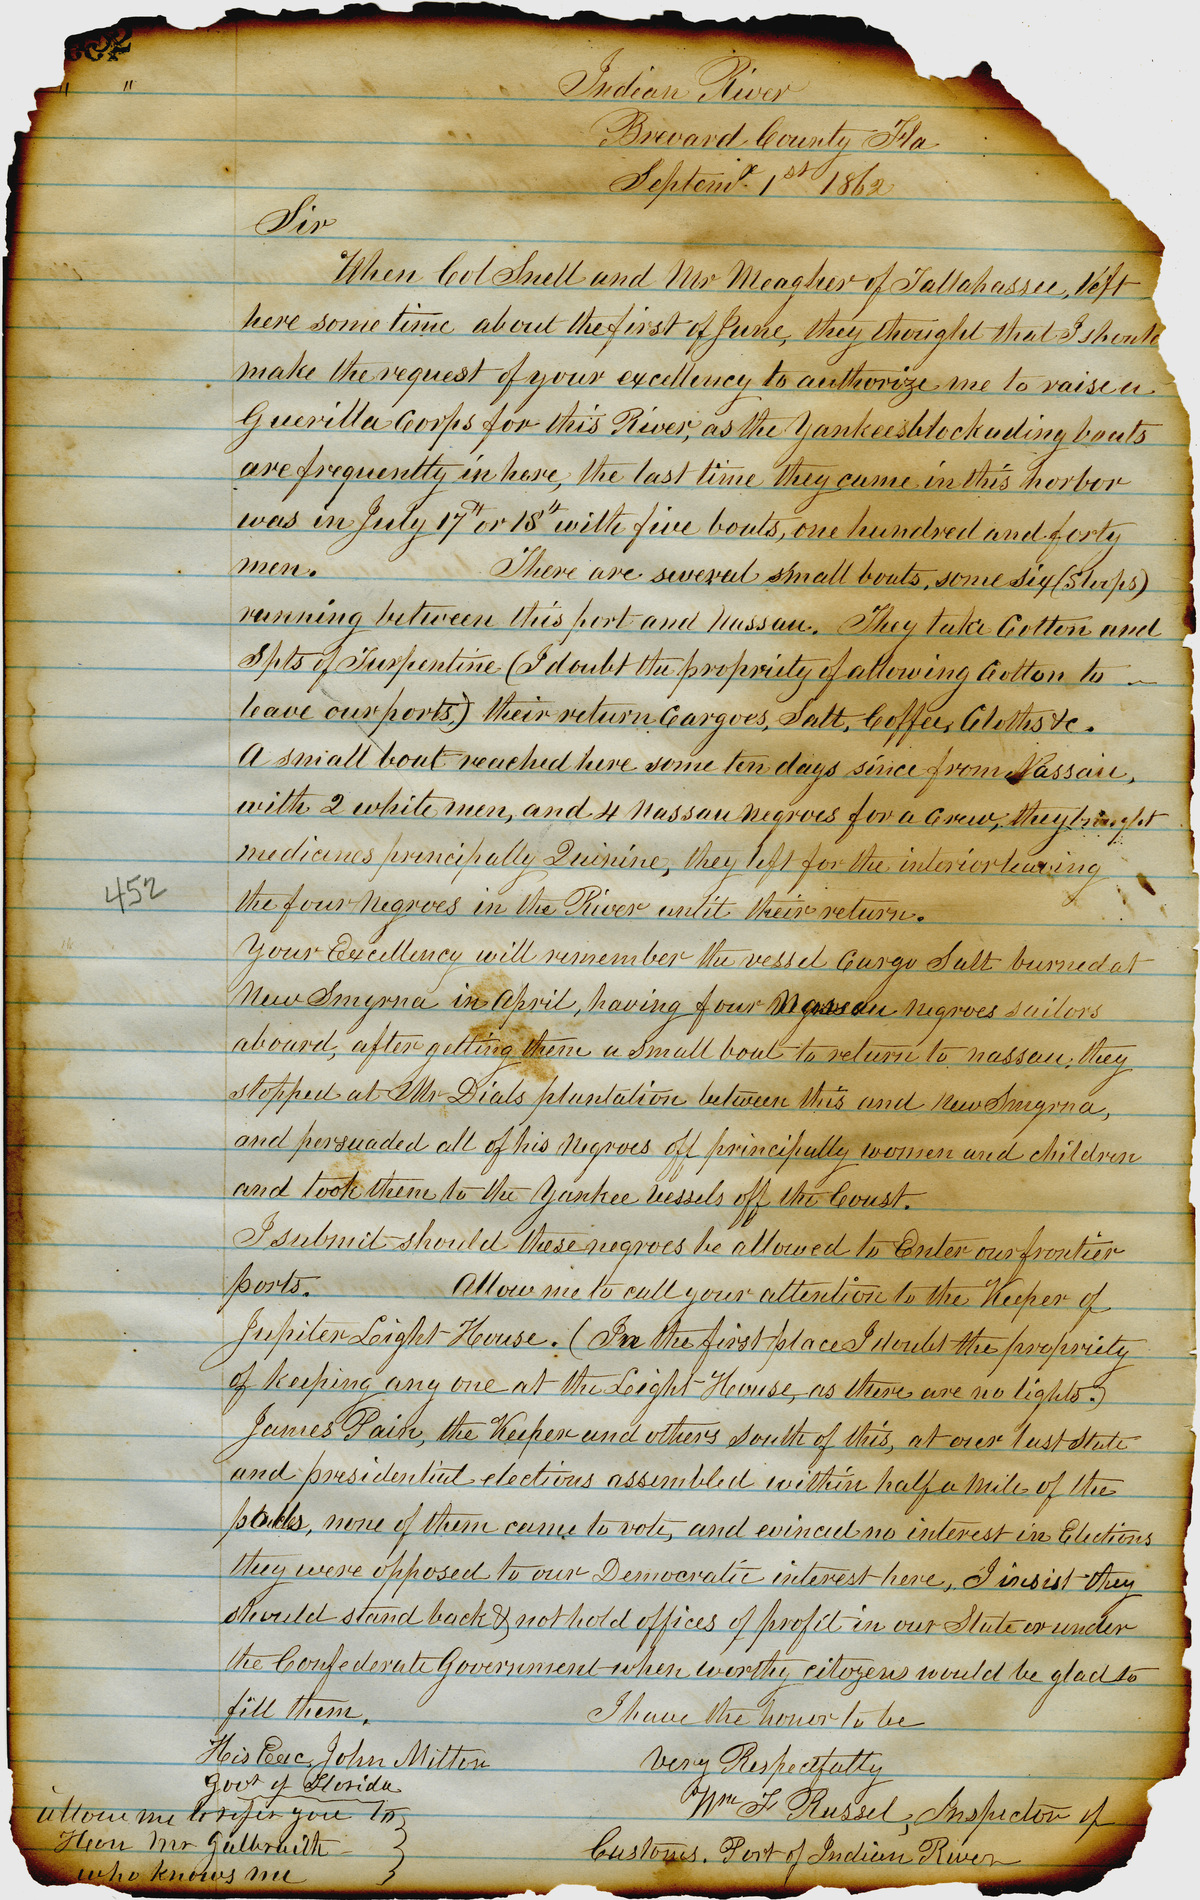 " "
Indian River
Brevard County Fla
Septemr. 1st 1862
Sir
When Col Snell and Mr Meagher of Tallahassee, left
here some time about the first of June, they thought that I should
make the request of your excellency to authorize me to raise a
Guerilla Corps for this River, as the Yankees blockading boats
are frequently in here, the last time they came in this horbor
was in July 17th or 18th with five boats, one hundred and forty
men. There are several small boats, some six (Sloops)
running between this port and Nassau. They take Cotton and
Spts of Turpentine (I doubt the propriety of allowing Cotton to
leave our ports,) their return Cargoes, Salt, Coffee, Cloths &c.
A small boat reached here some ten days since from Nassau,
with 2 white men, and 4 Nassau negroes for a Crew, they brought
medicines principally Quinine, they left for the interior leaving
452
the four negroes in the River until their return.
Your Excellency will remember the vessel Cargo Salt burned at
New Smyrna in April, having four Nassau negroes sailors
aboard, after getting them a small boat to return to nassau, they
stopped at Mr Dials plantation between this and New Smyrna,
and persuaded all of his negroes off principally women and children
and took them to the Yankee vessels off the Coast.
I submit should these negroes be allowed to Enter our frontier
ports. Allow me to call your attention to the Keeper of
Jupiter Light House. (In the first place I doubt the propriety
of keeping any one at the Light House, as there are no lights.)
James Pain, the Keeper and others south of this, at our last State
and presidential elections assembled within half a mile of the
polls, none of them came to vote, and evinced no interest in Elections
they were opposed to our Democratic interest here, I insist they
should stand back & not hold offices of profit in our State or under
the Confederate Government when worthy citizens would be glad to
fill them. I have the honor to be
His Exc. John Milton Very Respectfully
Govr of Florida
Wm F Russel, Inspector of
Customs. Port of Indian River
allow me to refer you to
Hon Mr Galbraith
who knows me